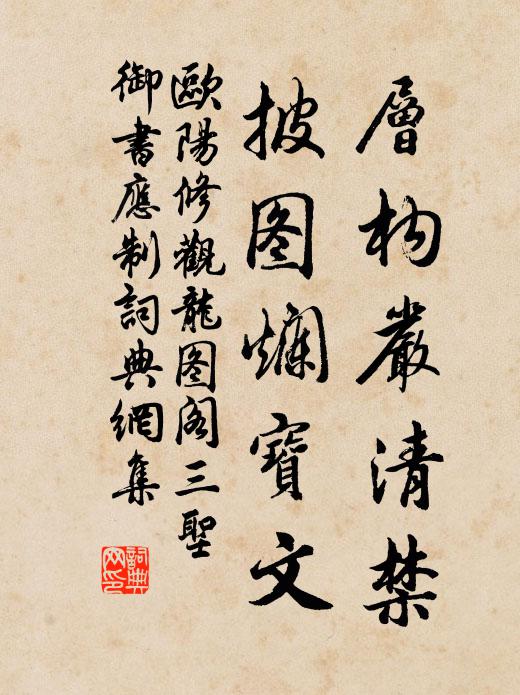 層构嚴清禁
披图爛寶文
歐陽修觀龍图阁三聖
御書應制詞典網集
詞典
网印